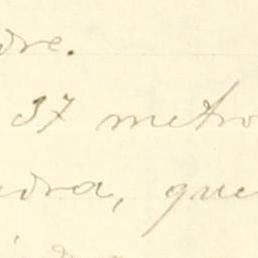 dre.
37 metro
edra, que